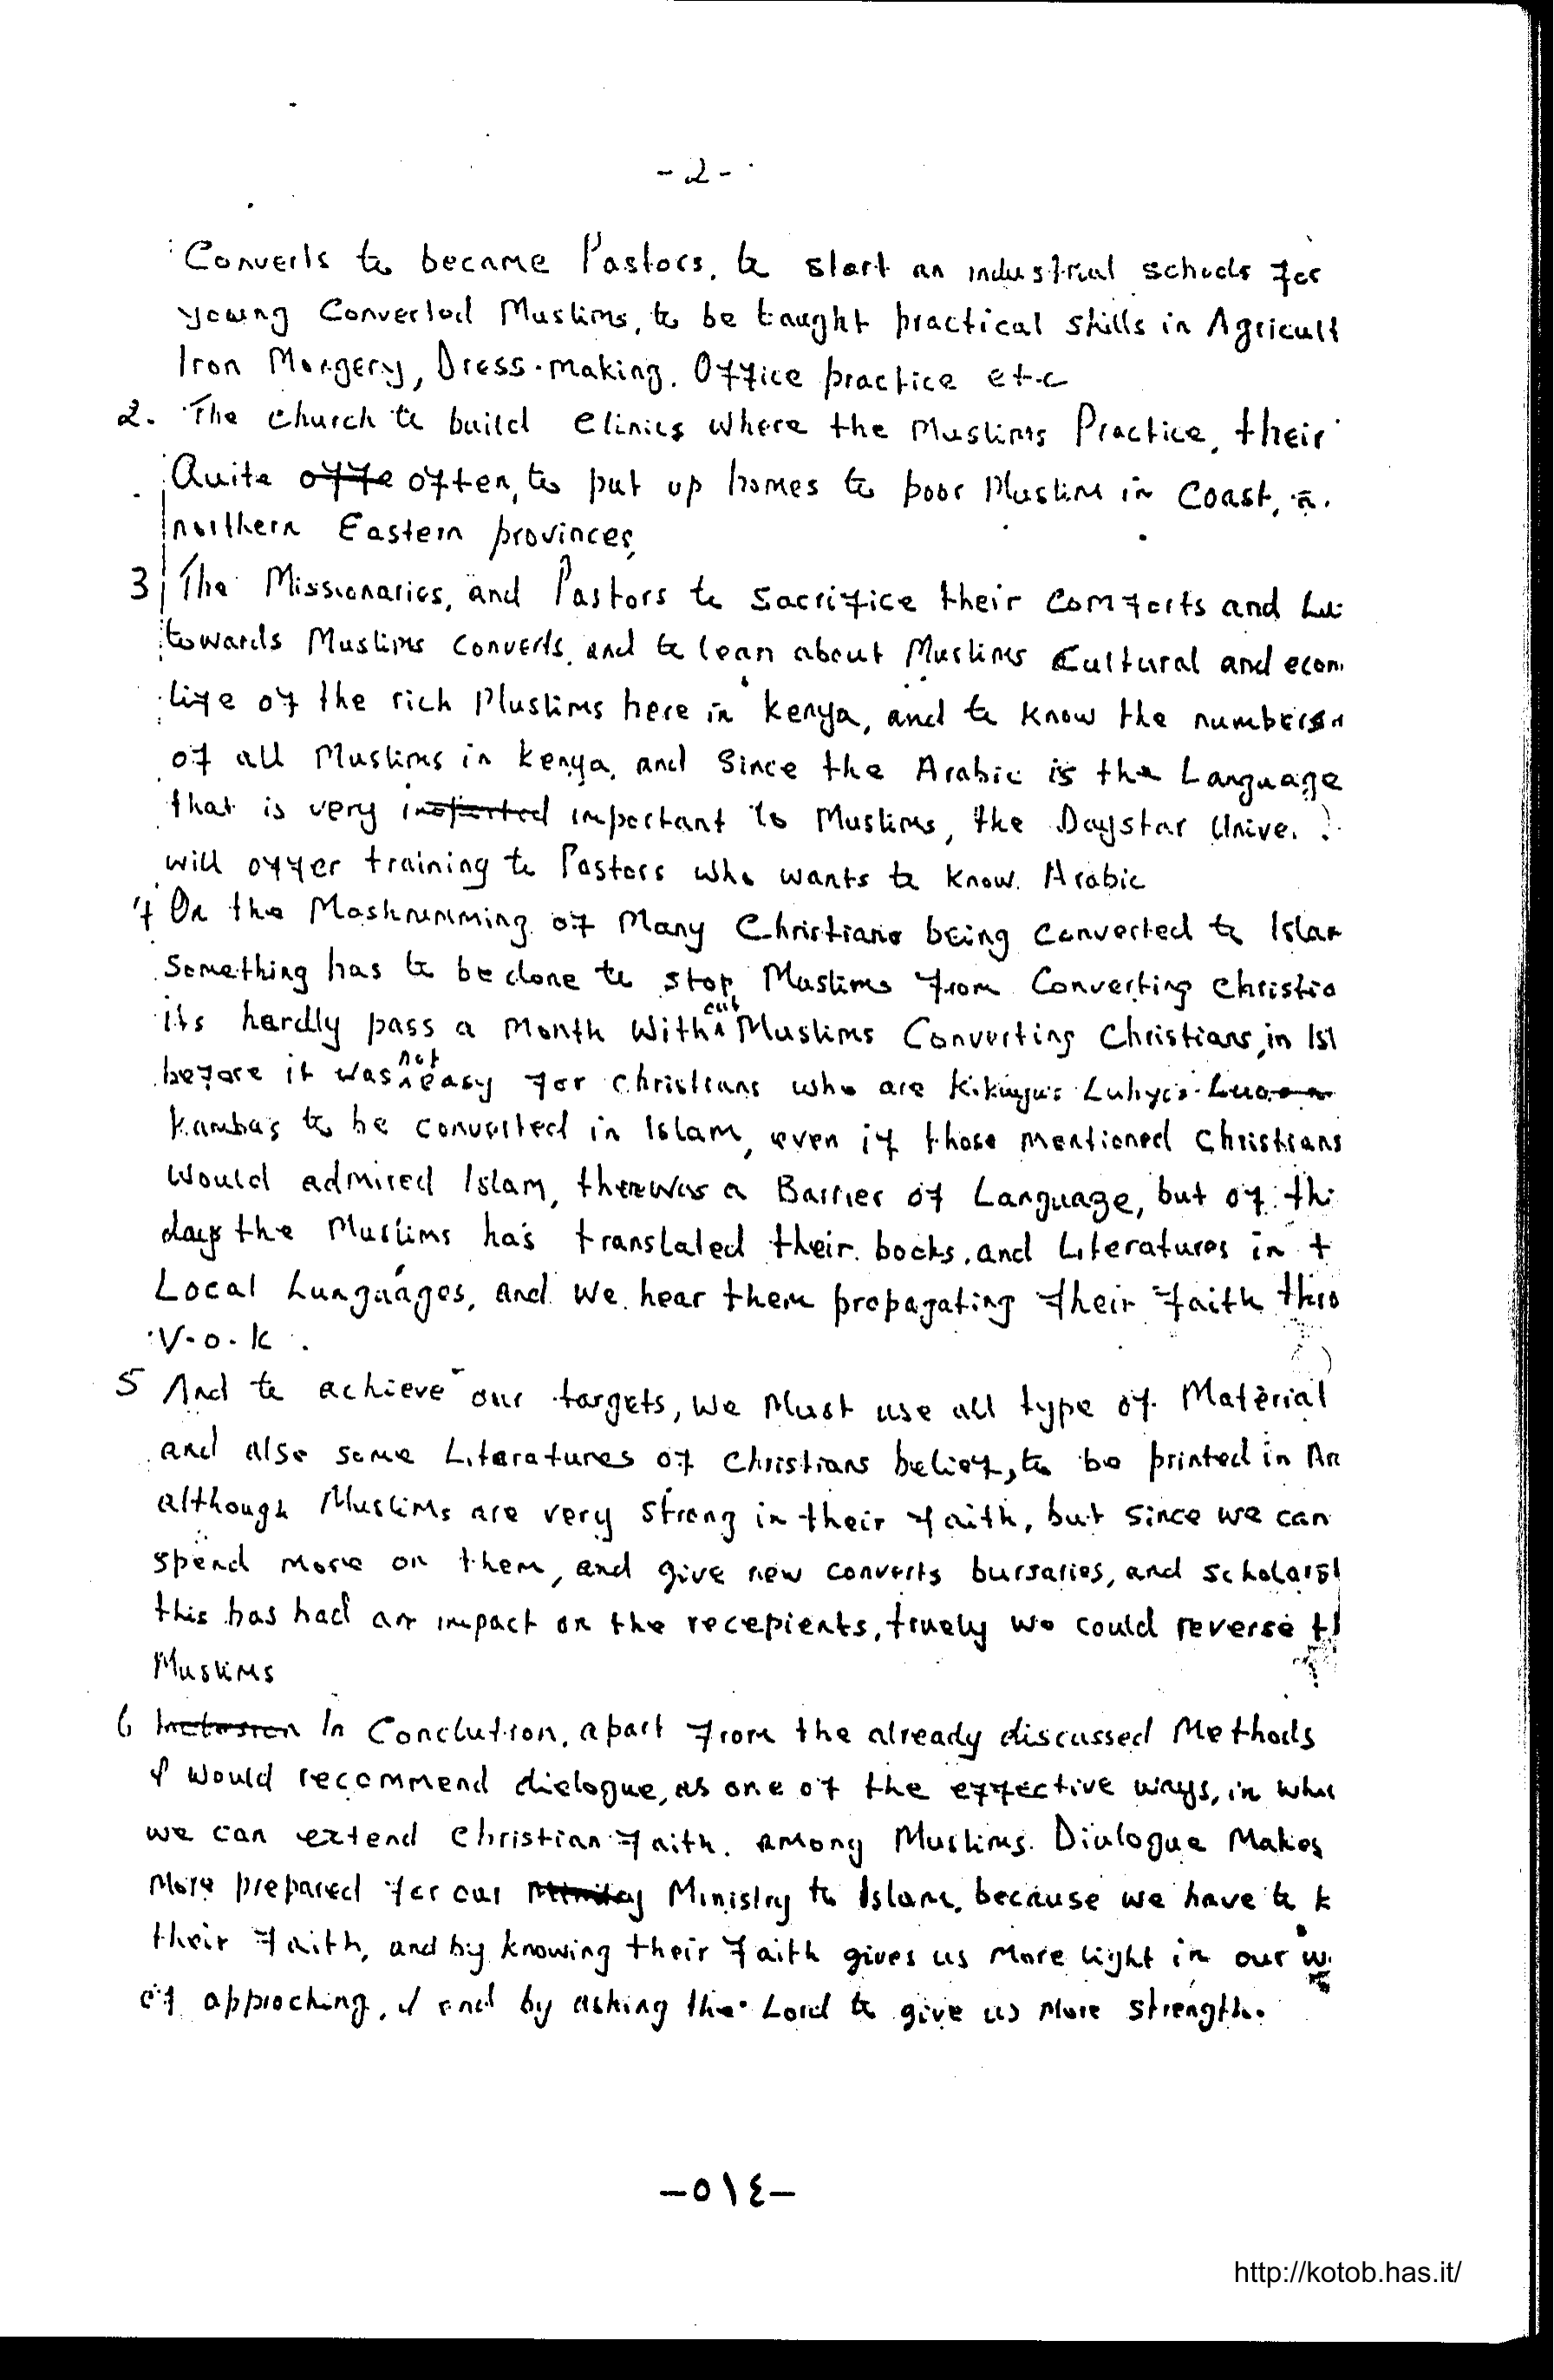 - 2 -
Converts to became Pastors, to start an industrial schools for
young Converted Muslims, to be taught practical skills in Agricult
Iron Mongery, Dress-making. Office practice etc
2. The church to build clinics where the Muslims Practice, their
Quite offe often, to put up homes to poor Muslim in Coast,
northern Eastern provinces,
3 The Missionaries, and Pastors to sacrifice their comforts and
towards Muslims converts, and to lean about Muslims Cultural and econ
life of the rich Muslims here in Kenya, and to know the numbers
of all Muslims in Kenya, and Since the Arabic is the Language
that is very important to Muslims, the Daystar Unive.
will offer training to Pastors who wants to know. Arabic
4 On the Mashrumming of Many Christians being converted to Islam
Something has to be done to stop Muslims from Converting christia
its hardly pass a month without Muslims Converting Christians, in Isl
before it was not easy for christians who are Kikuyu's Luhya's Luo
Kambas to be converted in Islam, even if those mentioned Christians
Would admired Islam, there was a Barrier of Language, but of th
days the Muslims has translated their books, and Literatures in t
Local Lunguages, and we hear them propagating their faith thro
V.o.k.
5 And to achieve our targets, we Must use all type of Material
and also some Literatures of Christians belief, to be printed in Ar
although Muslims are very strong in their faith, but since we can
spend more on them, and give new converts bursaries, and scholarsh
this has had an impact on the recepients, truely we could reverse th
Muslims
6 Inclusion In Conclution, apart from the already discussed Methods
I would recommend dielogue, as one of the effective ways, in
we can extend Christian faith. among Muslims. Dialogue Makes
More prepared for our Ministry to Islam, because we have to k
their faith, and by knowing their faith gives us more light in our w
of approching, and by asking the Lord to give us more strength.
-٥١٤-
http://kotob.has.it/